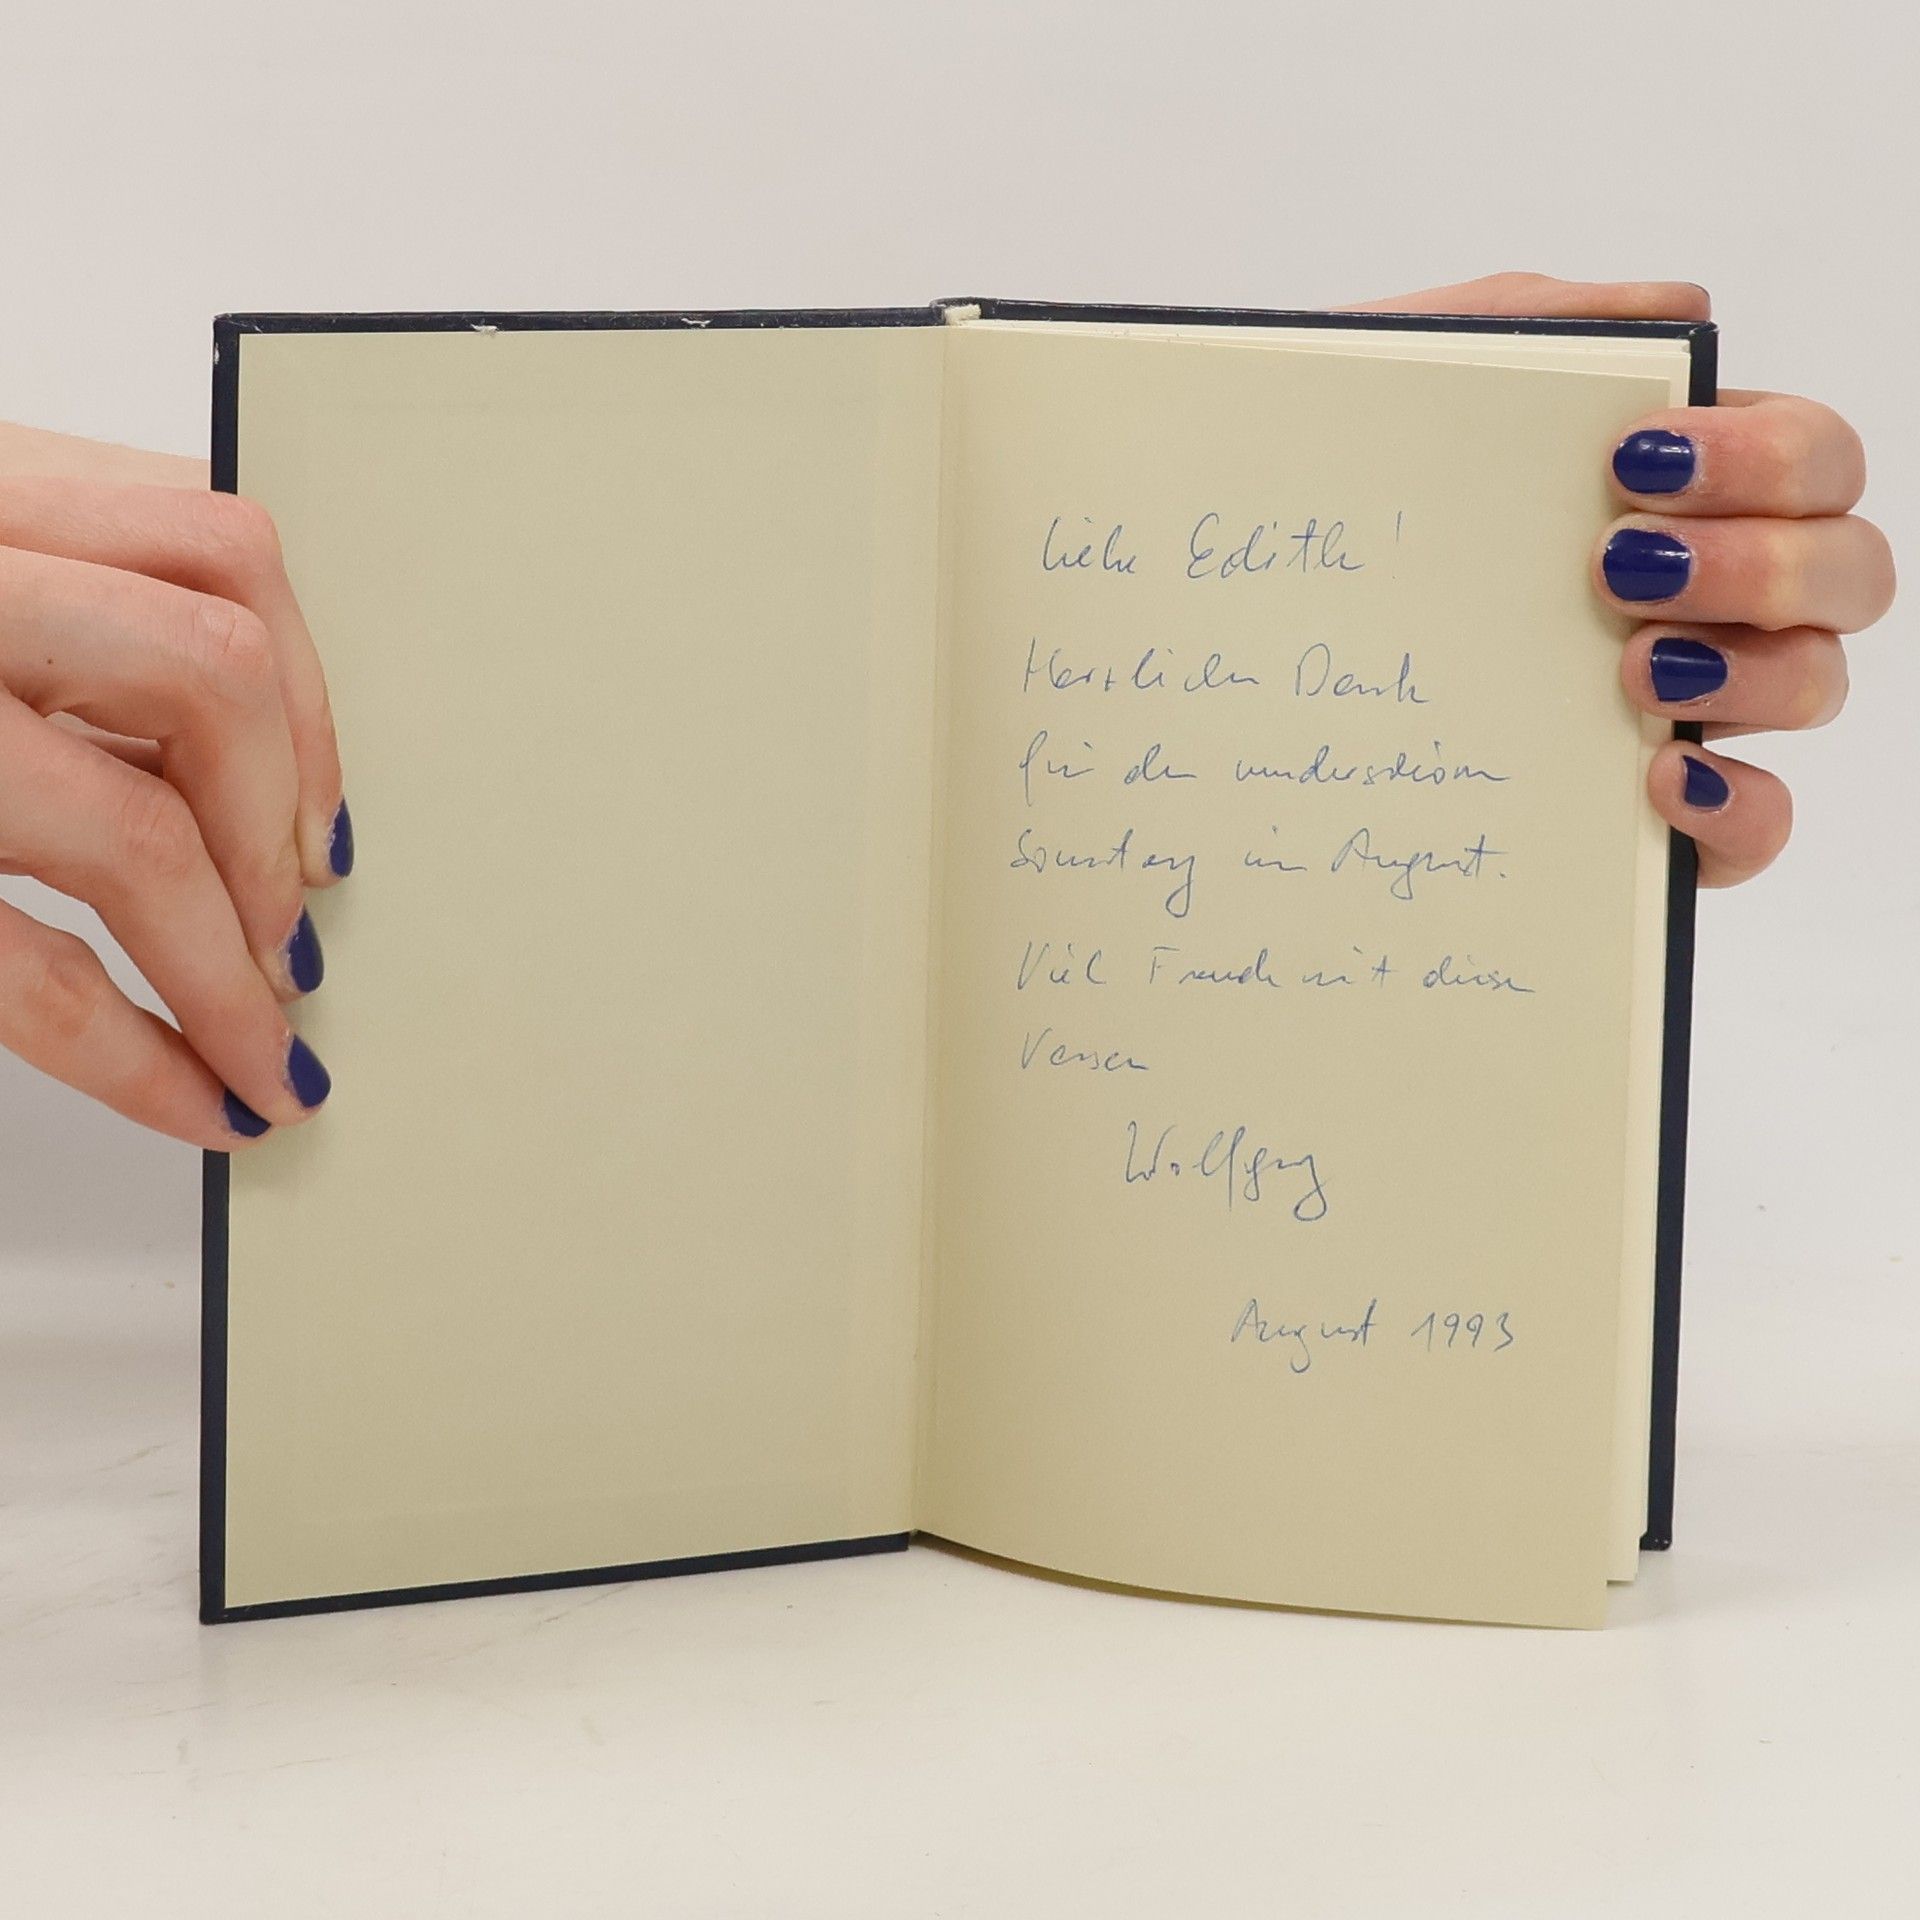 Liebe Edith!
Herzlichen Dank
für den wunderschönen
Sonntag im August.
Viel Freude mit diesen
Versen
Wolfgang
August 1993